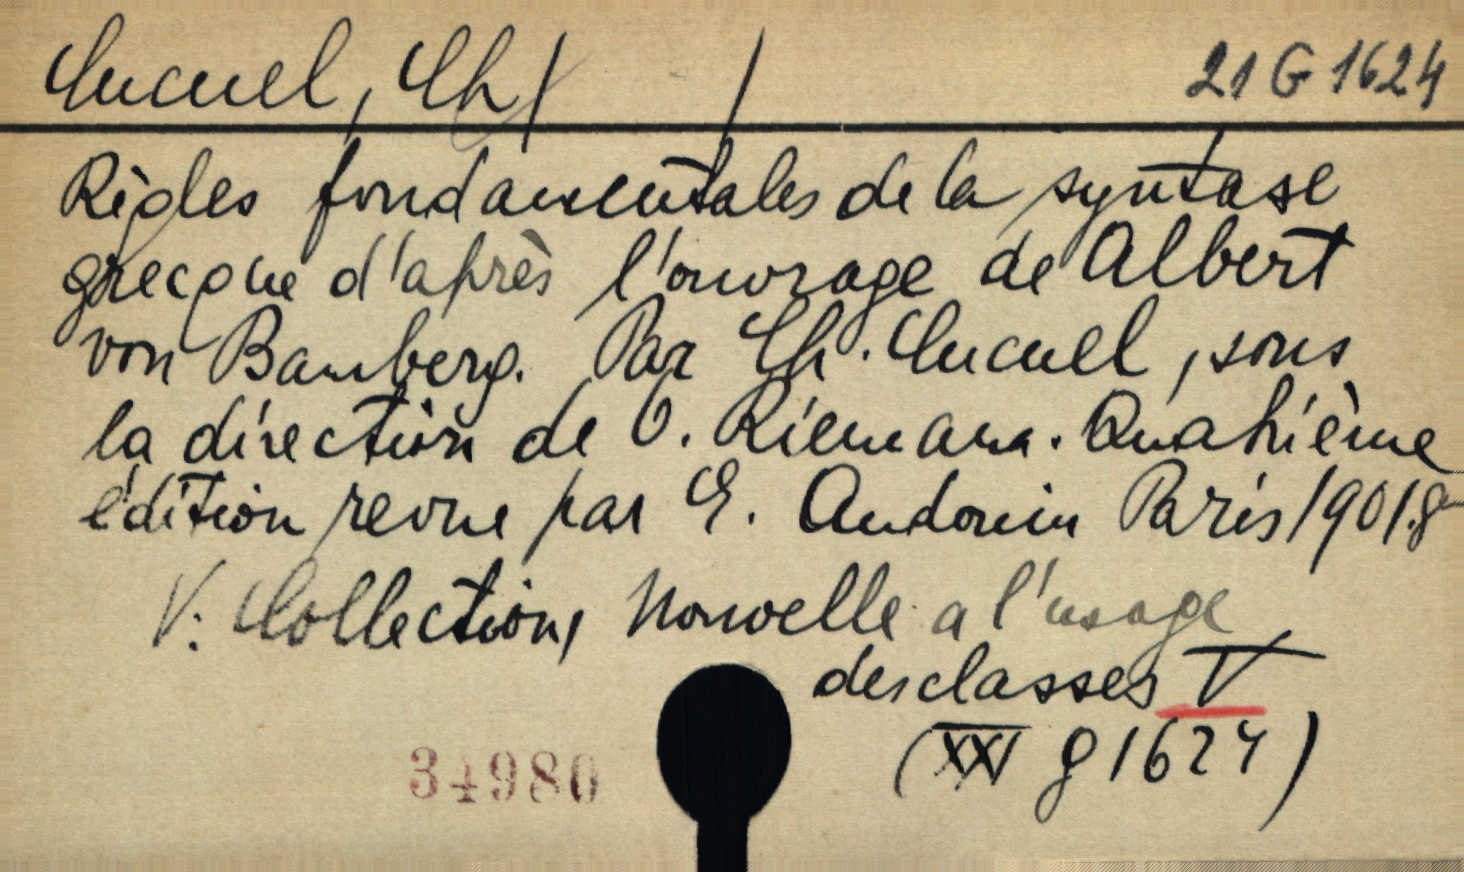 Cucuel, Ch / / 21 G 1624
Règles fondamentales de la syntase
grecque d'après l'ouvrage de Albert
von Bamberg. Par Ch. Cucuel, sous
la direction de O. Riemann. Quatrième
édition revue par E. Audouin Paris 1901. 8
V: Collection, Nouvelle a l'usage
des classes V
(XXI g 1624)
34980